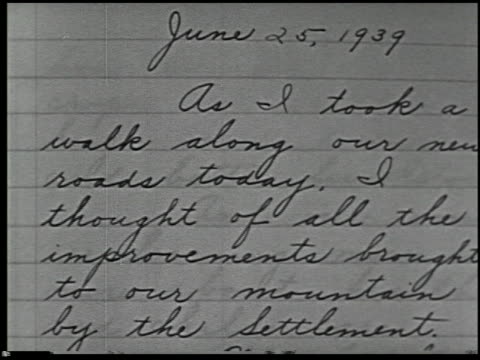 June 25, 1939
As I took a
walk along our new
roads today, I
thought of all the
improvements brought
to our mountain
by the Settlement.